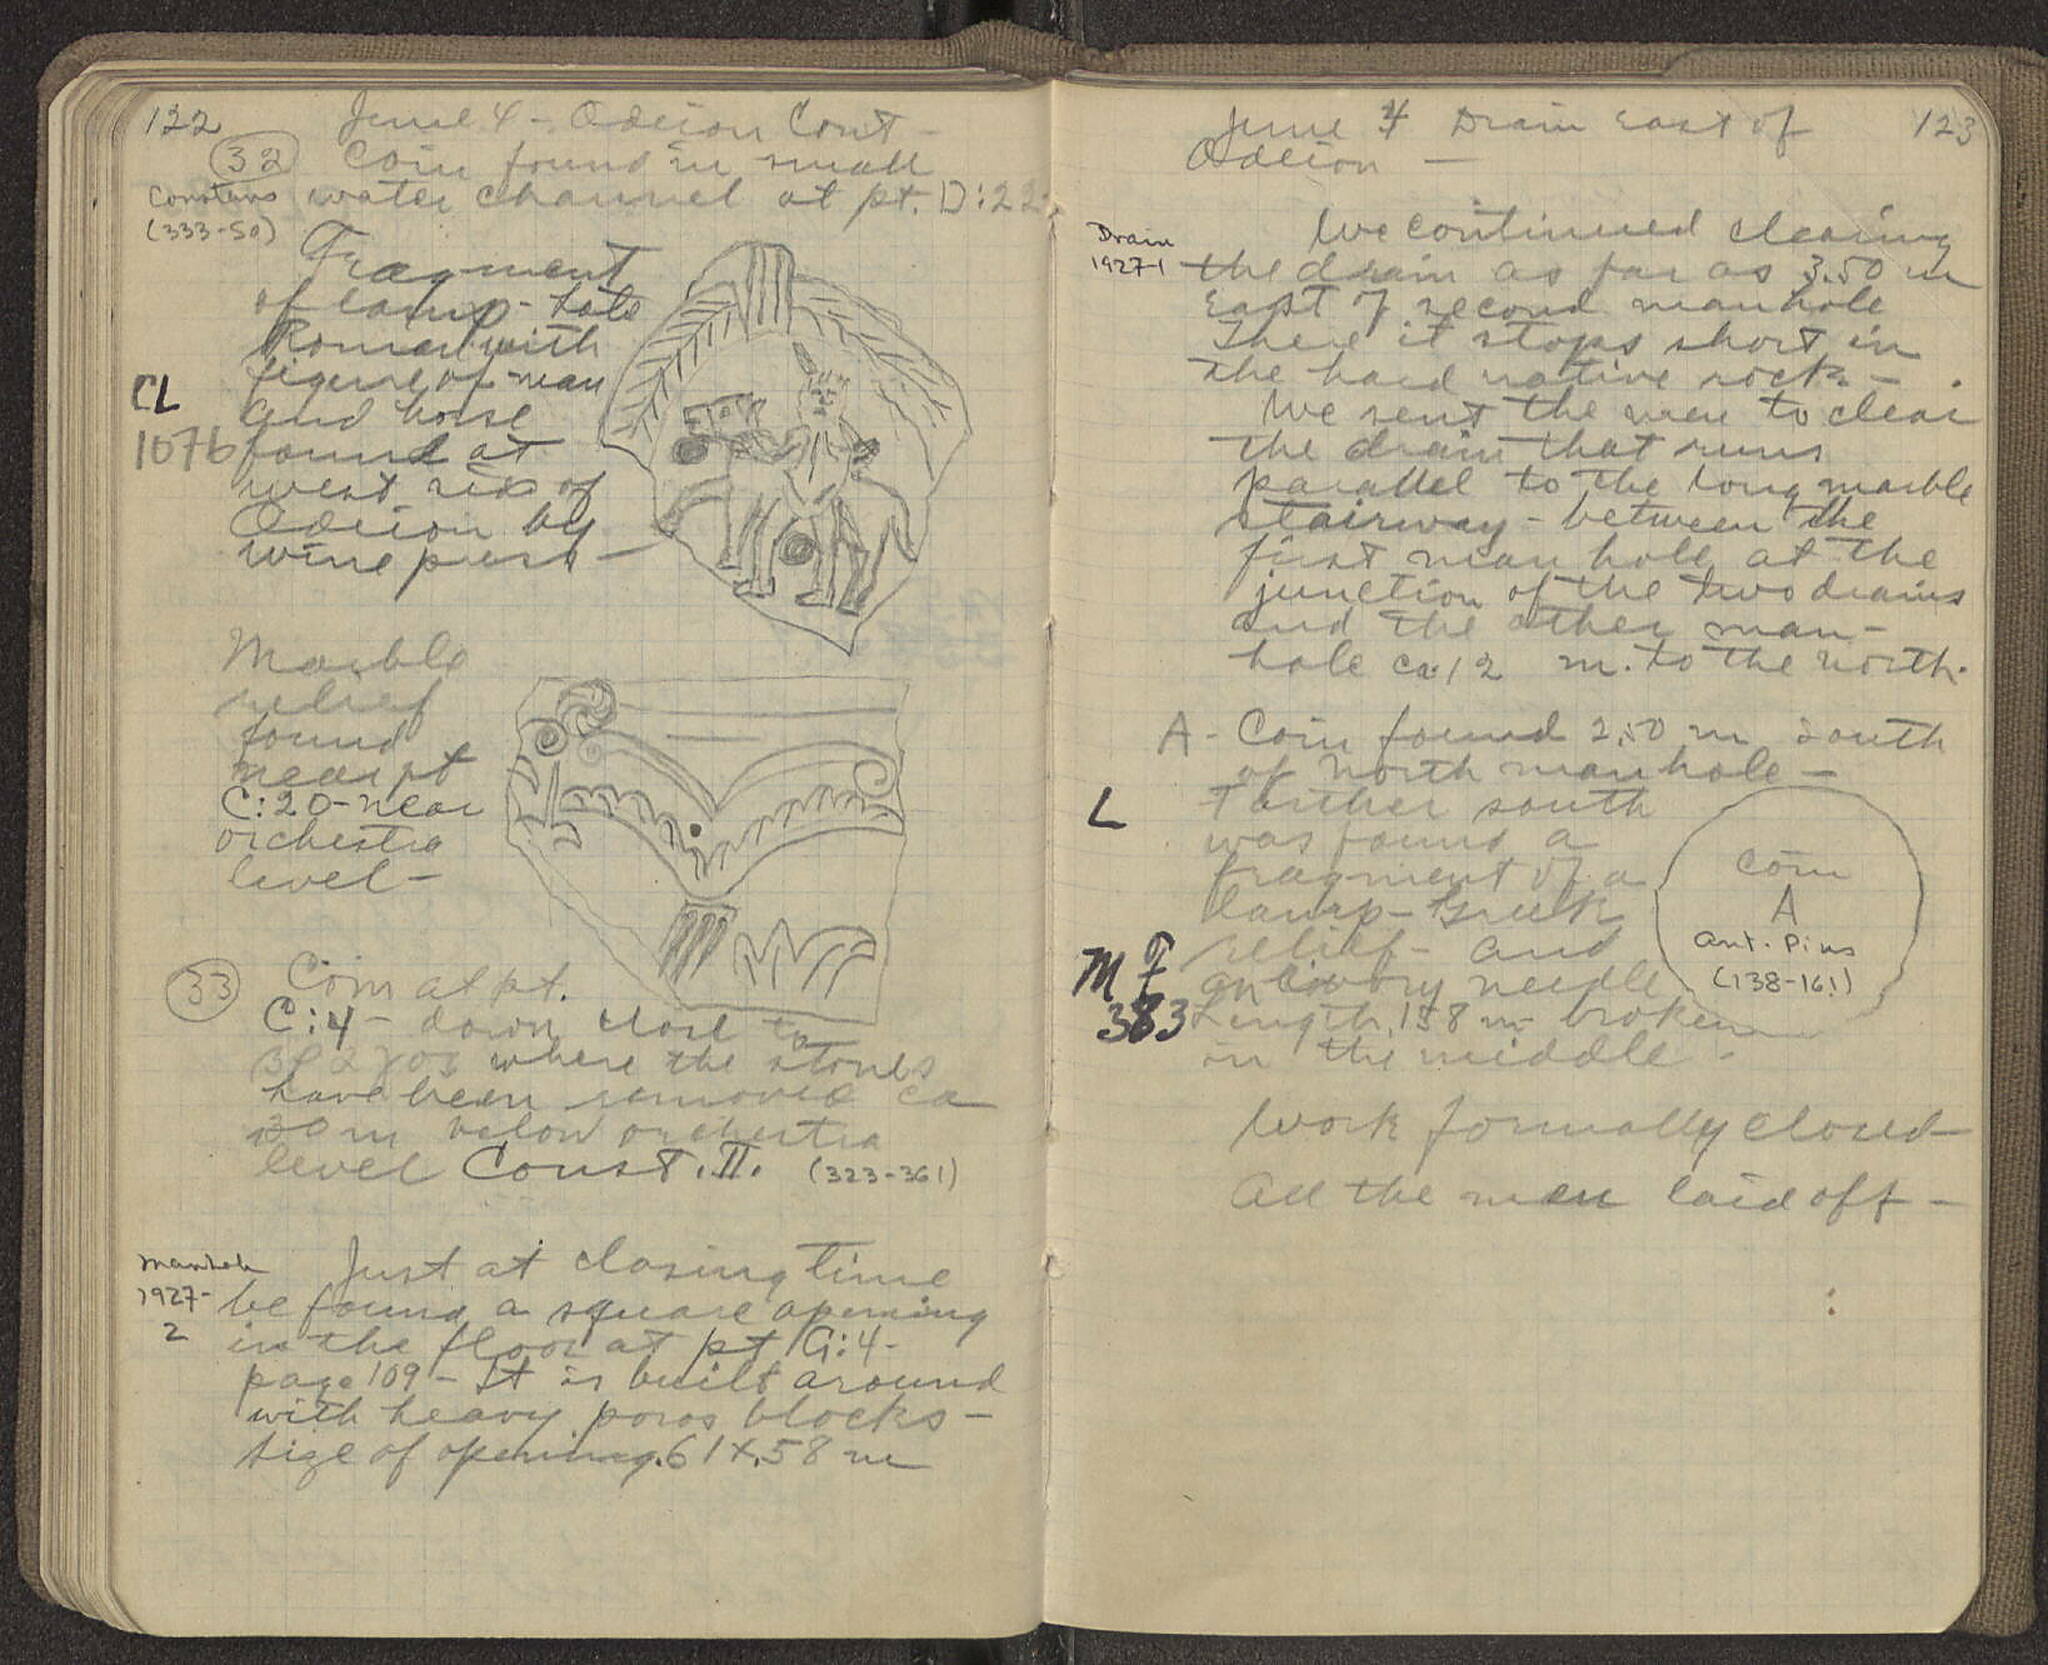 122
June 4 - Odeion Cont -
32 Coin found in small
Constans
(333-50)
water channel at pt. D:22
Fragment
of lamp - late
Roman with
figure of man
CL
1076
and horse
found at
west side of
Odeion by
wine press -
Marble
relief
found
near pt
C:20 - near
orchestra
level -
33 Coin at pt.
C:4 - down close to
where the stones
have been removed ca
.20 m below orchestra
level Const. II. (323-361)
Manhole
1927-
2
Just at closing time
be found a square opening
in the floor at pt G:4 -
page 109 - It is built around
with heavy poros blocks -
size of opening .61 x .58 m
June 4 Drain East of
Odeion -
123
Drain
1927-1
We continued clearing
the drain as far as 3.50 m
East of second manhole
There it stops short in
the hard native rock -
We sent the men to clear
the drain that runs
parallel to the long marble
stairway - between the
first man hole at the
junction of the two drains
and the other man-
hole ca. 12 m. to the north.
A - Coin found 2.50 m south
of north manhole -
L
Farther south
was found a
fragment of a
lamp - Greek
relief - and
MF
383
an ivory needle
Length .158 m broken
in the middle.
Coin
A
Ant. Pius
(138-161)
Work formally closed
All the men laid off -